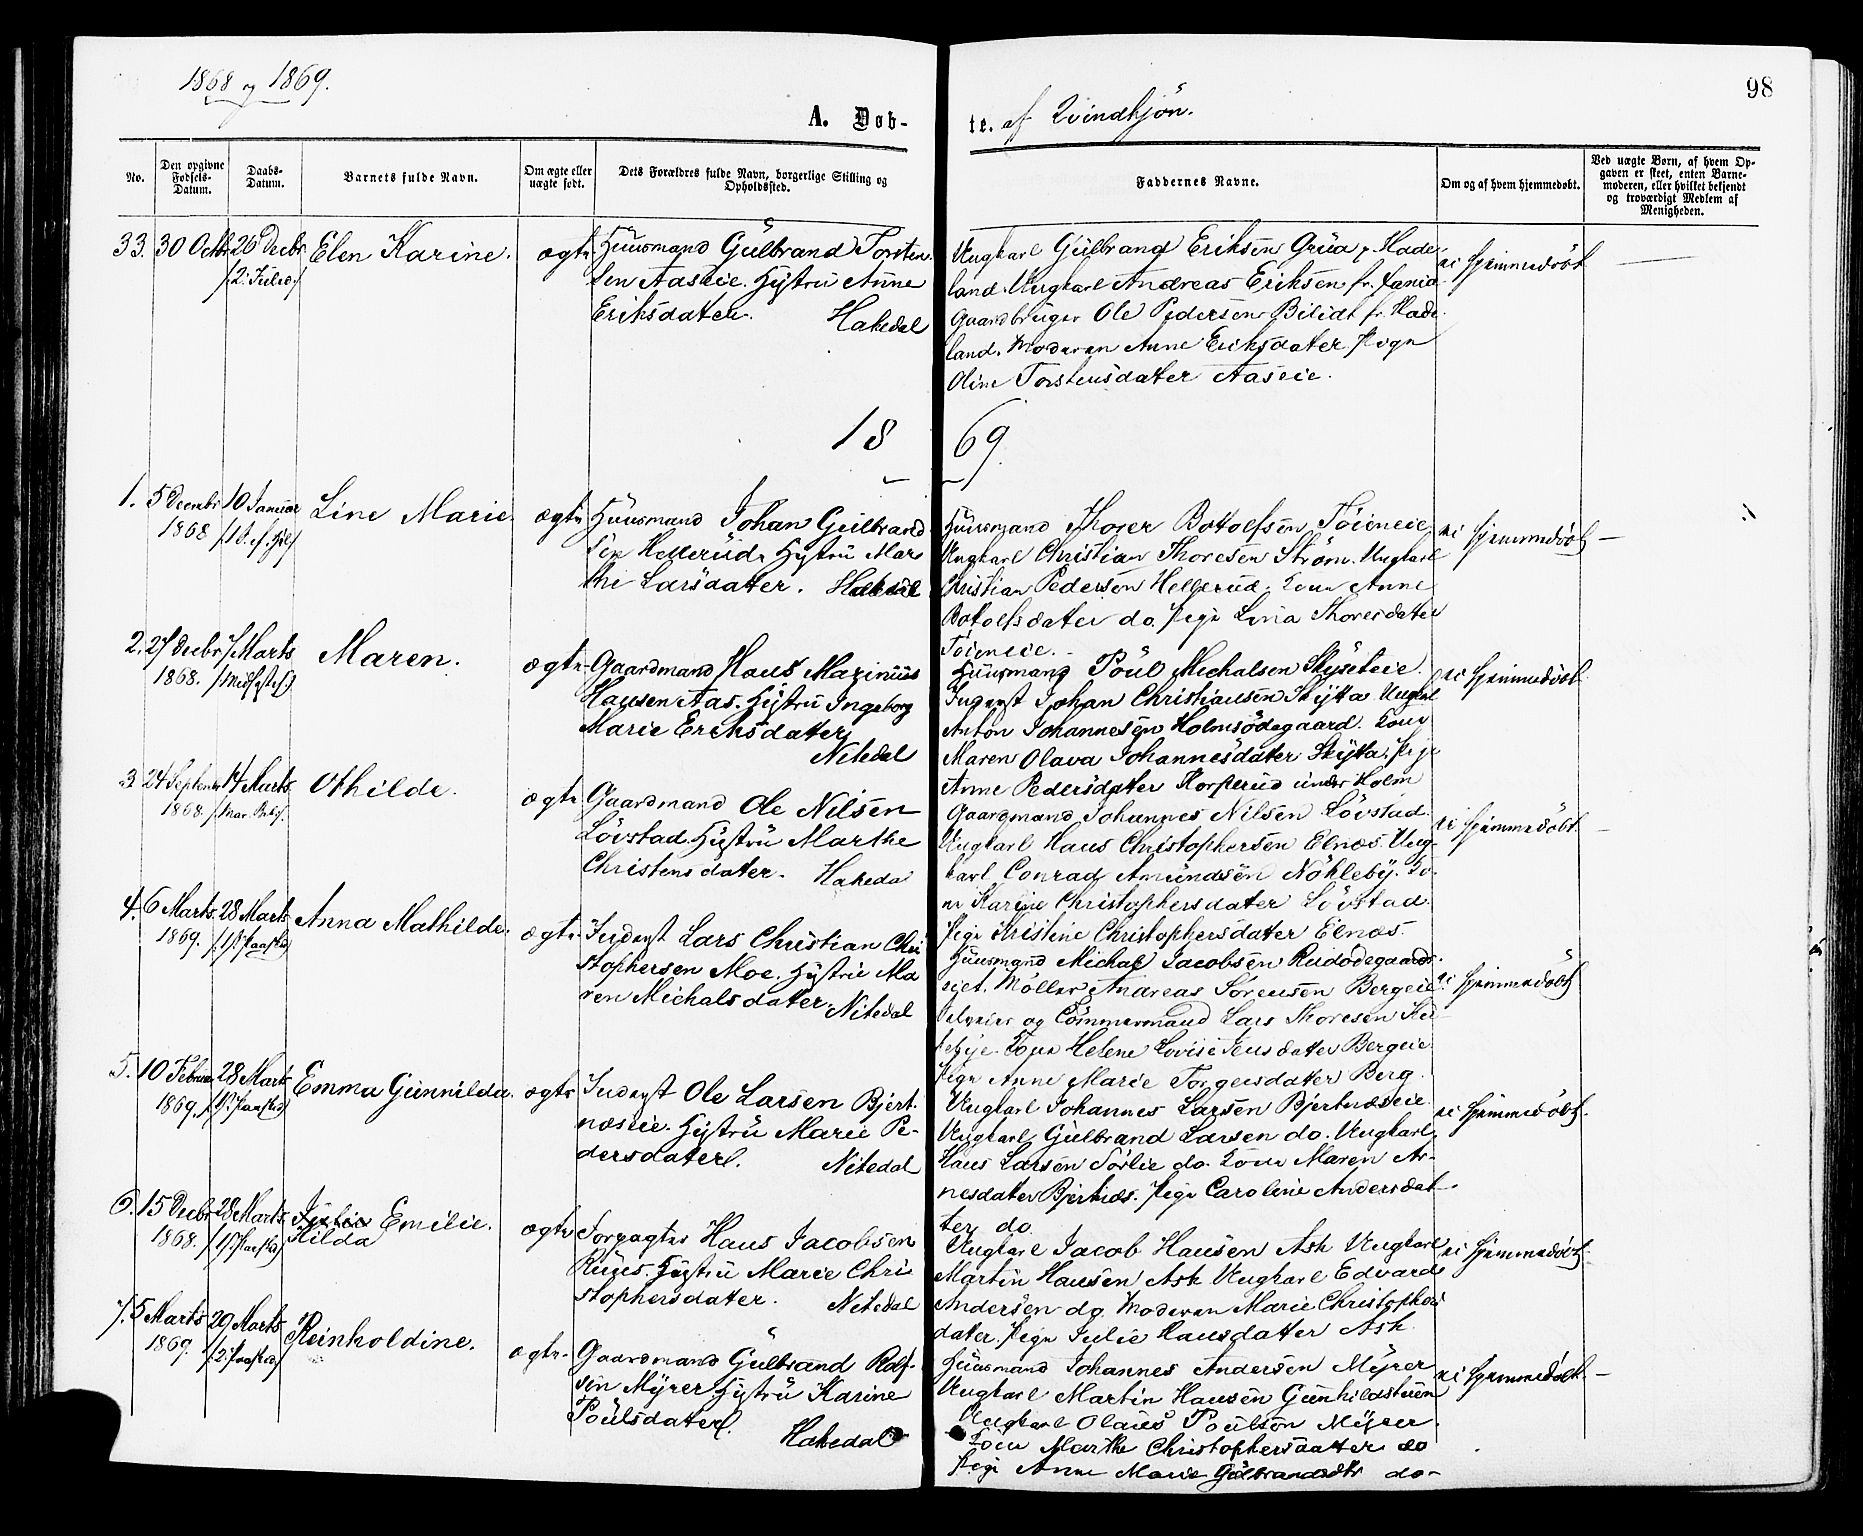 1868 og 1869.
98
A. Døb-
te. af Qvindkjön.
No.
Den opgivne Fødsels-Datum.
Daabs-Datum.
Barnets fulde Navn.
Om ægte eller uægte født.
Dets Forældres fulde Navn, borgerlige Stilling og Opholdssted.
Faddernes Navne.
Om og af hvem hjemmedøbt.
Ved uægte Børn, af hvem Opgaven er skeet, enten Barnemoderen, eller hvilket bekjendt og troværdigt Medlem af Menigheden.
33. 30 Octbr 26 Decbr Elen Karine. ægte
/2. Juled/
Huusmand Gulbrand Torsten
sen Aaseie. Hustru Anne
Eriksdater. Hakedal
Ungkarl Gulbrand Eriksen Grua p. Hade
land. Ungkarl Andreas Eriksen fr.
Gaardbruger Ole Pedersen Bilidt fr. Hade
land. Moderen Anne Eriksdater. Pige
Oline Torstensdater Aaseie.
ei hjemmedøbt
18 69.
1. 5 Decembr 10 Januar Line Marie. ægte
1868
Huusmand Johan Gulbrand
sen Hellerud. Hustru Mar
the Larsdater. Hakedal
Huusmand Thorer Botolfsen Töieneie
Ungkarl Christian Thoresen Ström. Ungkarl
Christian Pedersen Hellerud. Kone Anne
Botolfsdater do. Pige Lina Thoresdater
Töieneie.
ei hjemmedøbt
2. 27 Decbr 7 Marts Maren. ægte
1868. /Midfaste/
Gaardmand Hans Marinius
Hansen Aas. Hustru Ingeborg
Marie Eriksdater
Nitedal
Huusmand Poul Michalsen Skyseteie
Inderst Johan Christiansen Skytta. Ungkarl
Anton Johannesen Holmsödegaard. Kone
Maren Olava Johannesdater Skytta. Pige
Anne Pedersdater Korsterud under Holm
ei hjemmedøbt
3 24 Septembr 14 Marts Othilde. ægte
1868. /Mar. Beb./
Gaardmand Ole Nilsen
Lövstad. Hustru Marthe
Christensdater. Hakedal
Gaardmand Johannes Nilsen Lövstad.
Ungkarl Hans Christophersen Elnæs. Ung-
karl Conrad Amundsen Nökleby. Ko-
ne Karine Christophersdater Lövstad.
Pige Kristine Christophersdater Elnæs.
ei hjemmedøbt
4. 6 Marts. 28 Marts Anna Mathilde. ægte
1869. /1. Paasked/
Inderst Lars Christian Chri
stophersen Moe. Hustru Ma
ren Michalsdater. Nitedal
Huusmand Michal Jacobsen Rudödegaards-
eiet. Möller Andreas Sörensen Bergeie
Selveier og Tömmermand Lars Thoresen
Kone Helene Lovise Jensdatter Bergeie
Pige Anne Marie Torgersdatter Berg.
ei hjemmedøbt
5. 10 Februar 28 Marts Emma Gunnilda. ægte
1869. /1. Paasked/
Inderst Ole Larsen Bjert
næseie. Hustru Marie Pe-
dersdater. Nitedal
Ungkarl Johannes Larsen Bjertnæseie
Ungkarl Gulbrand Larsen do. Ungkarl
Hans Larsen Sörlie do. Kone Maren Ar-
nesdater Bjertnæs. Pige Caroline Andersdat-
ter do.
ei hjemmedøbt
6. 15 Decbr 28 Marts Julie Emilie. ægte
Hilda
1868. /1. Paasked/
Forpagter Hans Jacobsen
Ruus. Hustru Marie Chri
stophersdater. Nitedal
Ungkarl Jacob Hansen Ask Ungkarl
Martin Hansen Ask Ungkarl Edvard
Andersen do. Moderen Marie Christophers
dater. Pige Julie Hansdatter Ask
ei hjemmedøbt
7. 5 Marts 29 Marts Reinholdine. ægte
1869. /2. Paasked/
Gaardmand Gulbrand Rolf-
sen Myrer Hustru Karine
Poulsdater. Hakedal
Huusmand Johannes Andersen Myrer
Ungkarl Martin Hansen Gunhildstuen
Ungkarl Olaus Poulsen Myrer.
Kone Marthe Christophersdatter do
Pige Anne Marie Gulbrandsdtr do-
ei hjemmedøbt